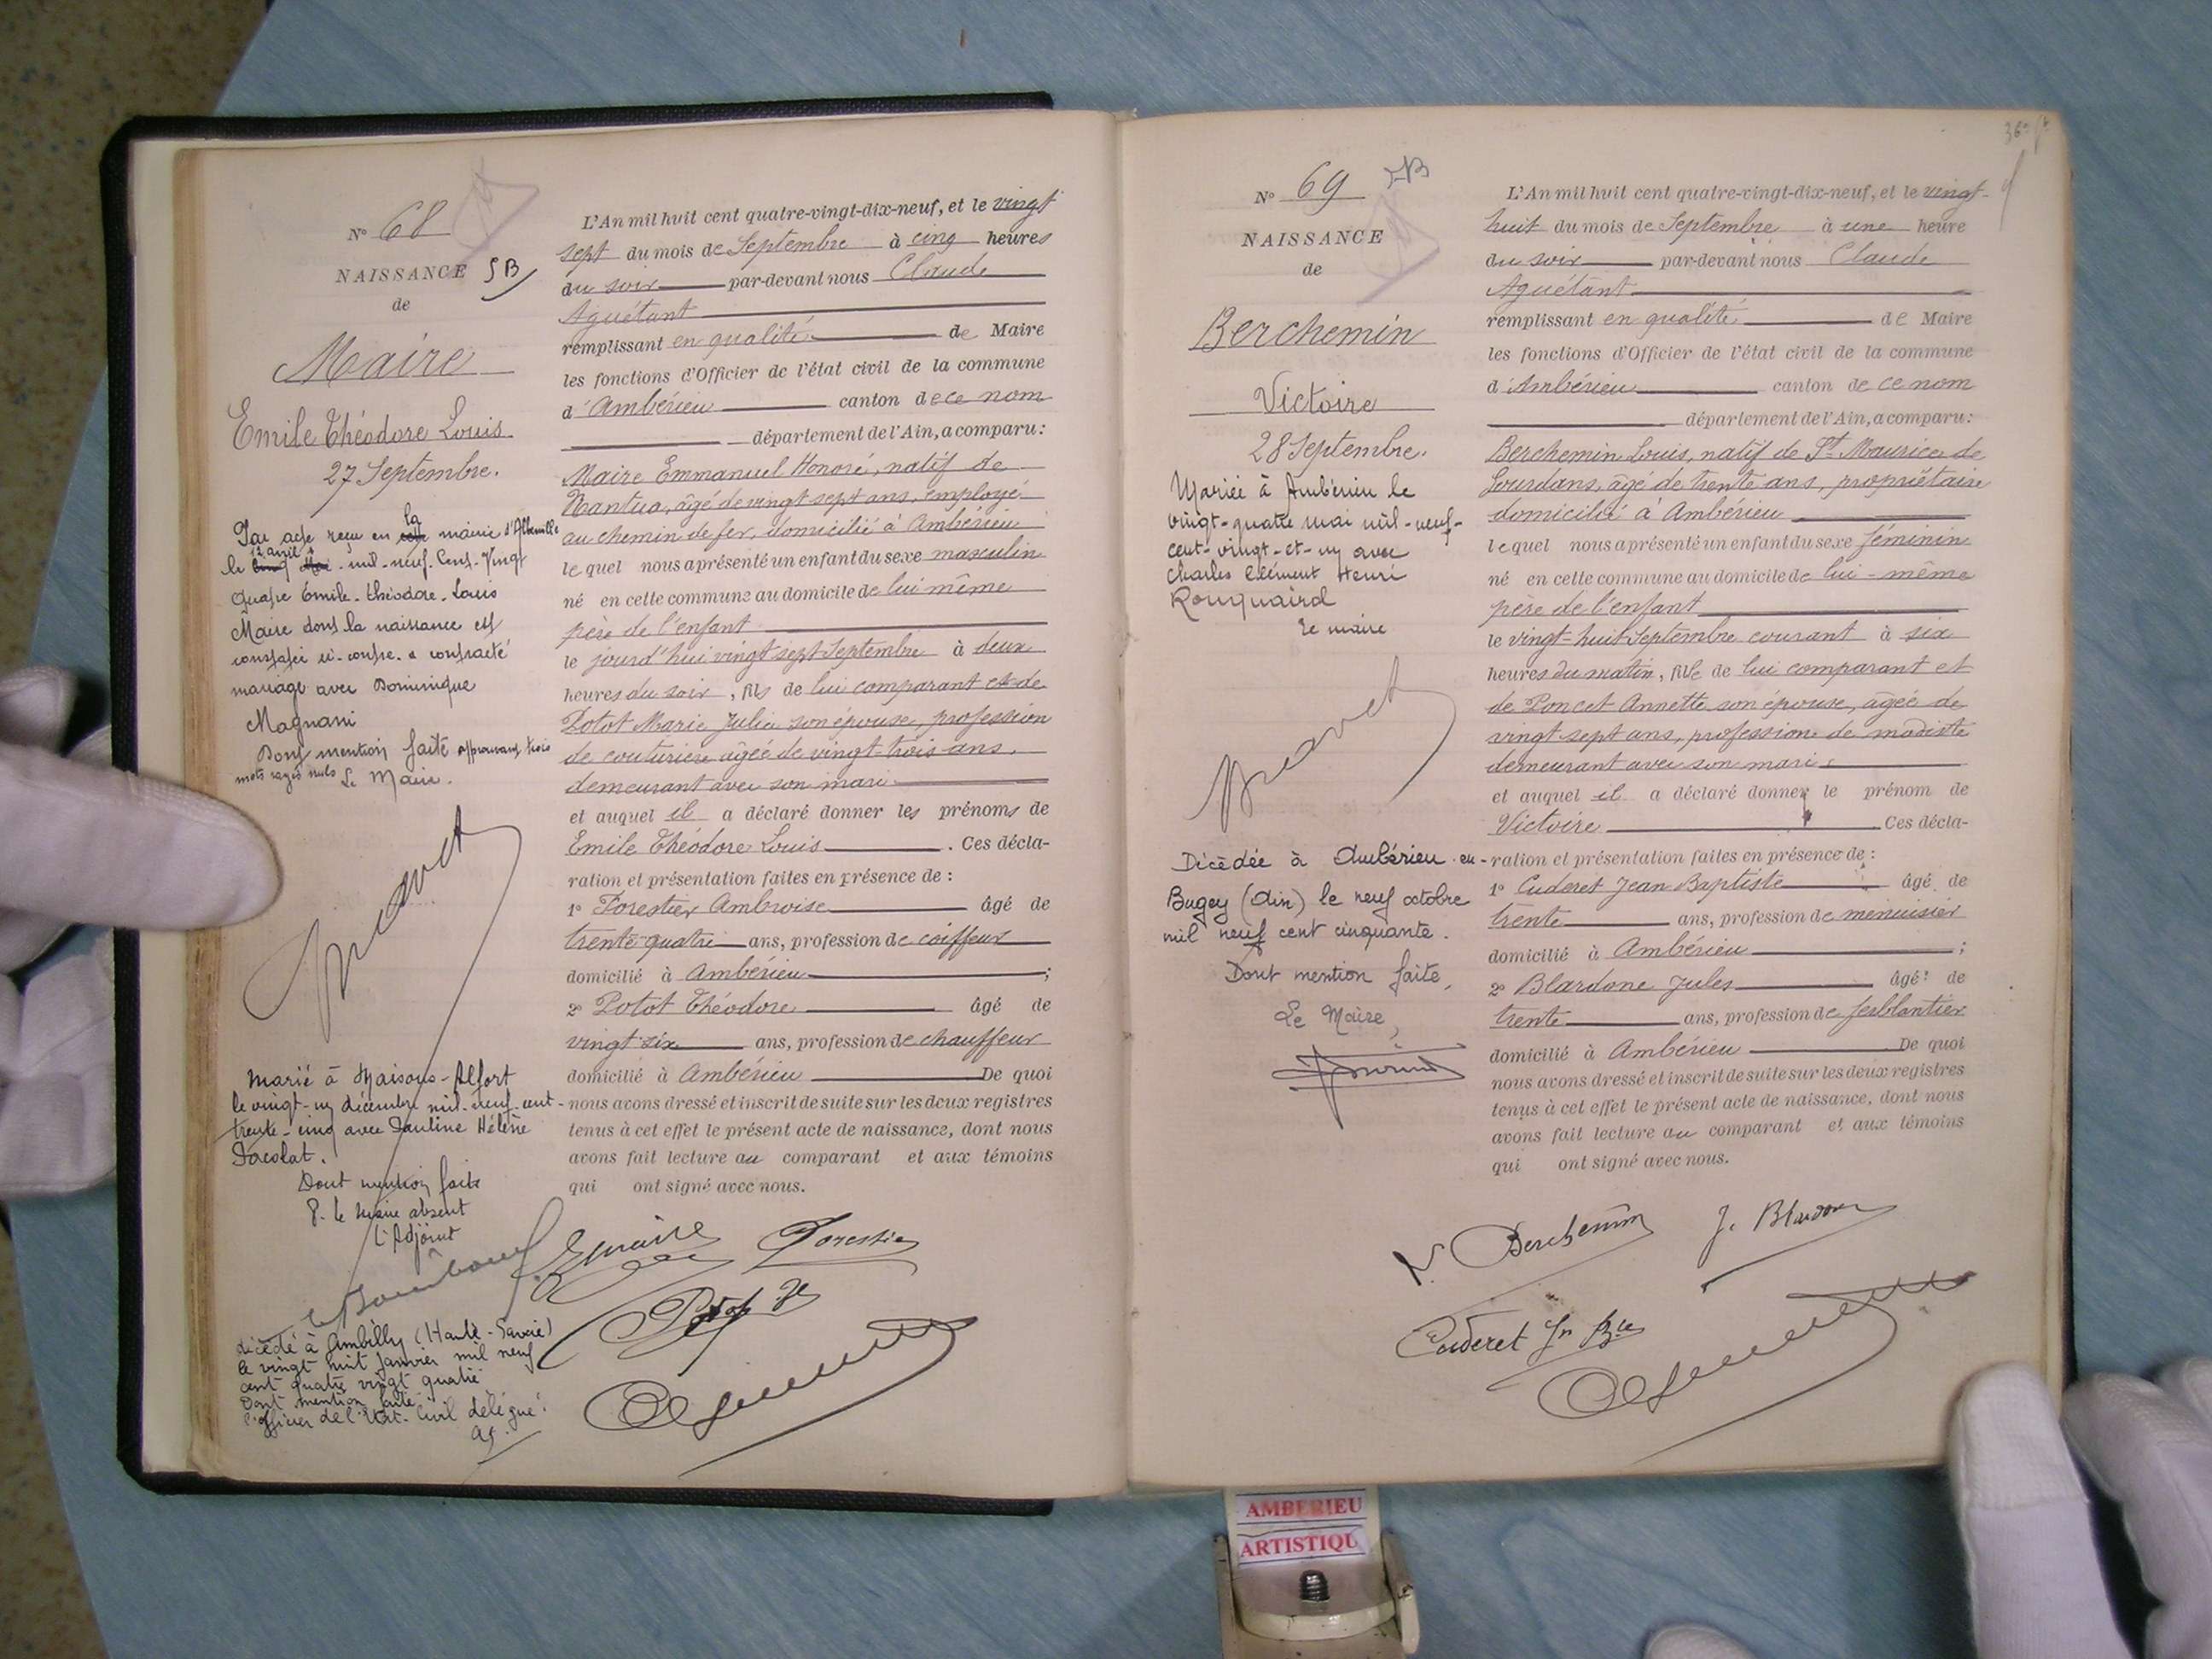 N° 68
NAISSANCE
de
Maire
Emile Théodore Louis
27 Septembre.
Par acte reçu en la mairie d'Abbeville
le 12 avril mil-neuf-Cent-Vingt
quatre Emile-théodore-Louis
Maire dont la naissance est
constatée ci-contre. a contracté
mariage avec Dominique
Magnani
Dont mention faite approuvant trois
mots rayés nuls Le Maire.
Marié à Maisons-Alfort
le vingt-un décembre mil-neuf-cent-
trente-cinq avec Pauline Hélène
Dont mention faite
P. le Maire absent
L'Adjoint
décédé à Ambilly (Haute-Savoie)
le vingt huit Janvier mil neuf
cent quatre vingt quatre
Dont mention faite.
l'officier de l'Etat-Civil délégué:
L'An mil huit cent quatre-vingt-dix-neuf, et le vingt
sept du mois de Septembre à cinq heures
du soir par-devant nous Claude
Aguétant
remplissant en qualité de Maire
les fonctions d'Officier de l'état civil de la commune
d'Ambérieu canton de ce nom
département de l'Ain, a comparu:
Maire Emmanuel Honoré, natif de
Nantua, âgé de vingt sept ans, employé
au chemin de fer, domicilié à Ambérieu
lequel nous a présenté un enfant du sexe masculin
né en cette commune au domicile de lui même
père de l'enfant
le jourd'hui vingt sept Septembre à deux
heures du soir, fils de lui comparant et de
Potot Marie Julie son épouse, profession
de couturière âgée de vingt-trois ans,
demeurant avec son mari
et auquel il a déclaré donner les prénoms de
Emile Théodore Louis . Ces décla-
ration et présentation faites en présence de :
1° Forestier Ambroise âgé de
trente-quatre ans, profession de coiffeur
domicilié à Ambérieu ;
2° Potot Théodore âgé de
vingt-six ans, profession de chauffeur
domicilié à Ambérieu De quoi
nous avons dressé et inscrit de suite sur les deux registres
tenus à cet effet le présent acte de naissance, dont nous
avons fait lecture au comparant et aux témoins
qui ont signé avec nous.
EMaire Forestier
N° 69
NAISSANCE
de
Berchemin
Victoire
28 Septembre.
Mariée à Ambérieu le
vingt-quatre mai mil-neuf-
cent-vingt-et-un avec
Charles Clément Henri
Rouquaird
le maire
Décédée à Ambérieu-en-
Bugey (Ain) le neuf octobre
mil neuf cent cinquante.
Dont mention faite,
Le Maire,
L'An mil huit cent quatre-vingt-dix-neuf, et le vingt-
huit du mois de Septembre à une heure
du soir par-devant nous Claude
Aguétant
remplissant en qualité de Maire
les fonctions d'Officier de l'état civil de la commune
d'Ambérieu canton de ce nom
département de l'Ain, a comparu:
Berchemin Louis, natif de St Maurice de
Gourdans, âgé de trente ans, propriétaire
domicilié à Ambérieu
lequel nous a présenté un enfant du sexe féminin
né en cette commune au domicile de lui-même
père de l'enfant
le vingt-huit Septembre courant à six
heures du matin, fille de lui comparant et
de Poncet Annette son épouse, âgée de
vingt sept ans, profession de modiste
demeurant avec son mari
et auquel il a déclaré donner le prénom de
Victoire Ces décla-
ration et présentation faites en présence de :
1° Cuderet Jean Baptiste âgé de
trente ans, profession de menuisier
domicilié à Ambérieu ;
2° Blardone Jules âgé de
trente ans, profession de ferblantier
domicilié à Ambérieu De quoi
nous avons dressé et inscrit de suite sur les deux registres
tenus à cet effet le présent acte de naissance, dont nous
avons fait lecture au comparant et aux témoins
qui ont signé avec nous.
L. Berchemin J. Blardone
Cuderet Jn Bte
AMBERIEU
ARTISTIQU